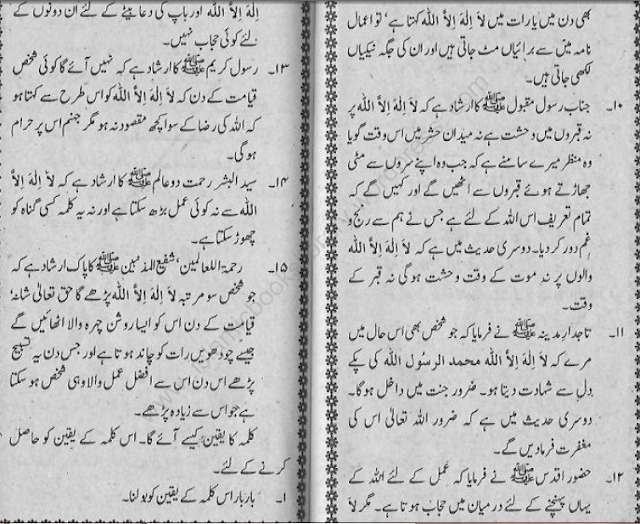 بھی دن میں یا رات میں لَا اِلٰہَ اِلَّا اللہُ کہتا ہے تو اعمال
نامہ میں سے برائیاں مٹ جاتی ہیں اور ان کی جگہ نیکیاں
لکھی جاتی ہیں۔
۱۰۔ جناب رسول مقبول ﷺ کا ارشاد ہے کہ لَا اِلٰہَ اِلَّا اللہُ پر
نہ قبروں میں وحشت ہے نہ میدان حشر میں اس وقت گویا
وہ منظر میرے سامنے ہے کہ جب وہ اپنے سروں سے مٹی
جھاڑتے ہوئے قبروں سے اٹھیں گے اور کہیں گے کہ
تمام تعریف اس اللہ کے لئے ہے جس نے ہم سے رنج و
غم دور کر دیا۔ دوسری حدیث میں ہے کہ لَا اِلٰہَ اِلَّا اللہُ
والوں پر نہ موت کے وقت وحشت ہوگی نہ قبر کے
وقت۔
۱۱۔ تاجدار مدینہ ﷺ نے فرمایا کہ جو شخص بھی اس حال میں
مرے کہ لَا اِلٰہَ اِلَّا اللہُ محمد الرسول اللہ کی پکے
دل سے شہادت دیتا ہو۔ ضرور جنت میں داخل ہوگا۔
دوسری حدیث میں ہے کہ ضرور اللہ تعالیٰ اس کی
مغفرت فرمادیں گے۔
۱۲۔ حضور اقدس ﷺ نے فرمایا کہ عمل کے لئے اللہ کے
یہاں پہنچنے کے لئے درمیان میں حجاب ہوتا ہے۔ مگر لَا
اِلٰہَ اِلَّا اللہُ اور باپ کی دعا بیٹے کے لئے ان دونوں کے
لئے کوئی حجاب نہیں۔
۱۳۔ رسول کریم ﷺ کا ارشاد ہے کہ نہیں آئے گا کوئی شخص
قیامت کے دن کہ لَا اِلٰہَ اِلَّا اللہُ کو اس طرح سے کہتا ہو
کہ اللہ کی رضا کے سوا کچھ مقصود نہ ہو مگر جہنم اس پر حرام
ہوگی۔
۱۴۔ سید البشر رحمت دو عالم ﷺ کا ارشاد ہے کہ لَا اِلٰہَ اِلَّا
اللہُ سے نہ کوئی عمل بڑھ سکتا ہے اور نہ یہ کلمہ کسی گناہ کو
چھوڑ سکتا ہے۔
۱۵۔ رحمۃ اللعالمین، شفیع المذنبین ﷺ کا پاک ارشاد ہے کہ
جو شخص سو مرتبہ لَا اِلٰہَ اِلَّا اللہُ پڑھے گا حق تعالیٰ شانہٗ
قیامت کے دن اس کو ایسا روشن چہرہ والا اٹھائیں گے
جیسے چودھویں رات کو چاند ہوتا ہے اور جس دن یہ تسبیح
پڑھے اس دن اس سے افضل عمل والا وہی شخص ہو سکتا
ہے جو اس سے زیادہ پڑھے۔
کلمہ کا یقین کیسے آئے گا۔ اس کلمہ کے یقین کو حاصل
کرنے کے لئے۔
۱۔ بار بار اس کلمہ کے یقین کو بولنا۔